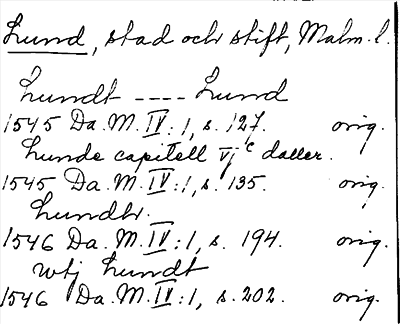 Lund, stad och stift, Malm. l.
Lundt ---- Lund
1545 Da. M. IV: 1, s. 127. orig.
Lunde capitell vjᶜ daller.
1545 Da. M. IV: 1, s. 135. orig.
Lundtr.
1546 Da. M. IV: 1, s. 194. orig.
wtj Lundt
1546 Da. M. IV: 1, s. 202. orig.